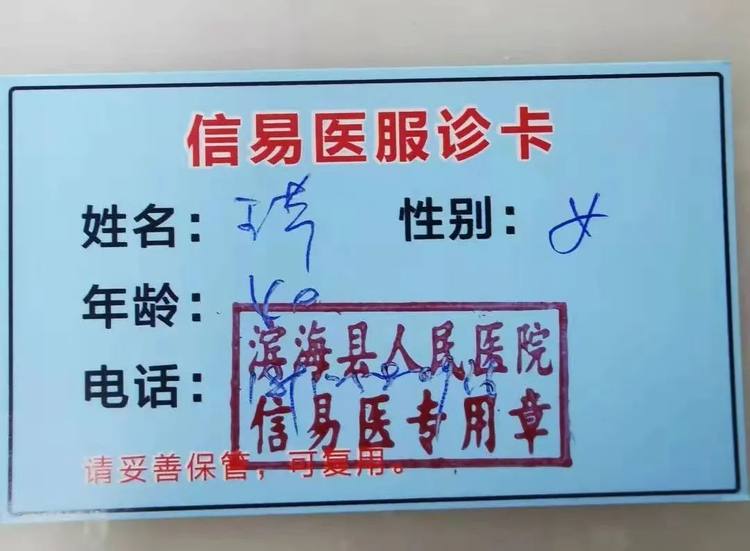 信易医服诊卡
姓名： 性别：女
年龄：
滨海县人民医院
电话：
信易医专用章
请妥善保管，可复用。